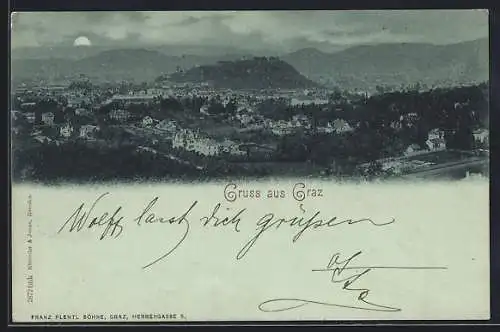 Gruss aus Graz
Wolff lasst Dich grüßen
FRANZ PLENTL SÖHNE, GRAZ, HERRENGASSE